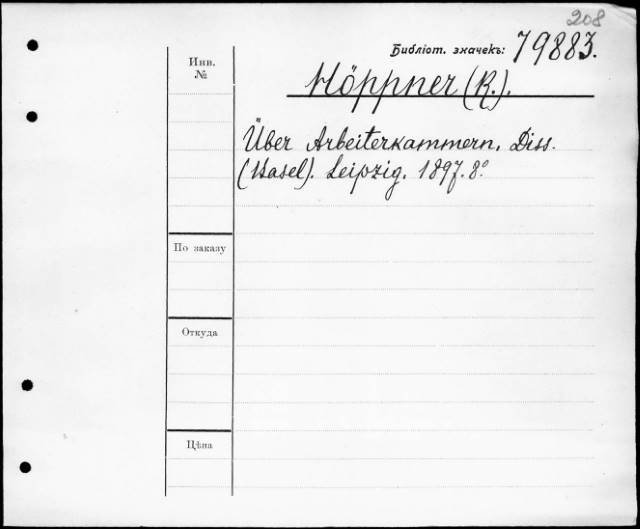 208
Библіот. значекъ: 79883.
Инв.
№
Höppner (R.).
Über Arbeiterkammern. Diss.
(Basel). Leipzig. 1897. 8°
По заказу
Откуда
Цѣна